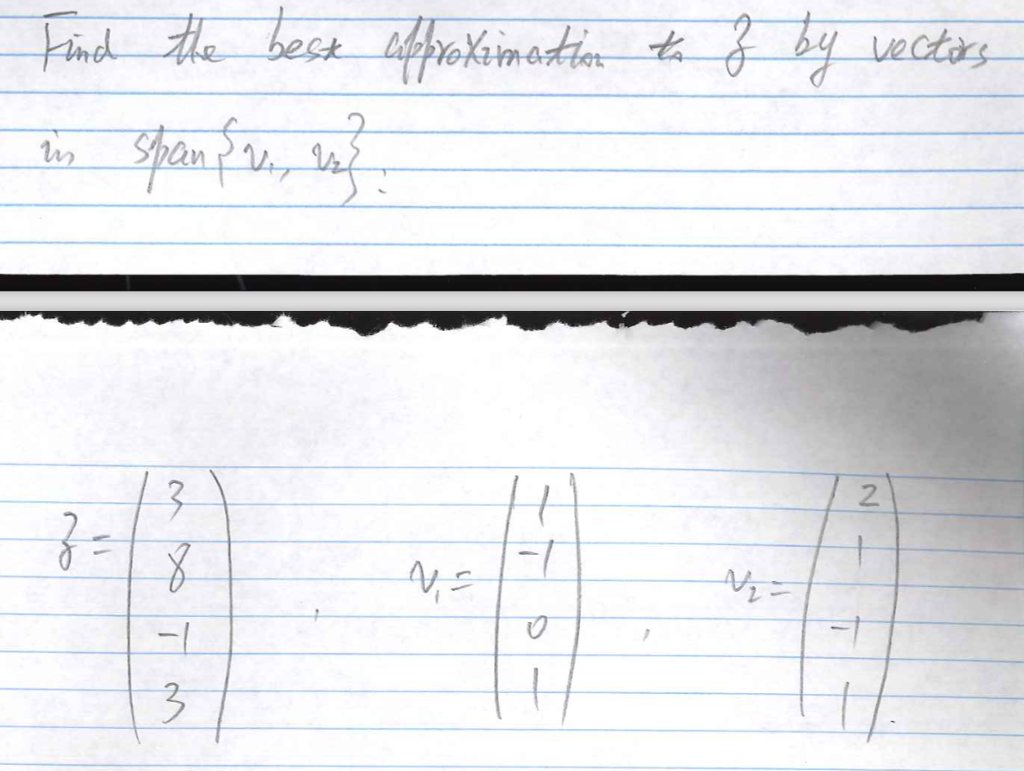 Find the best approximation to z by vectors
in span{v₁, v₂}.
z = (3 8 -1 3), v₁ = (1 -1 0 1), v₂ = (2 1 -1 1).